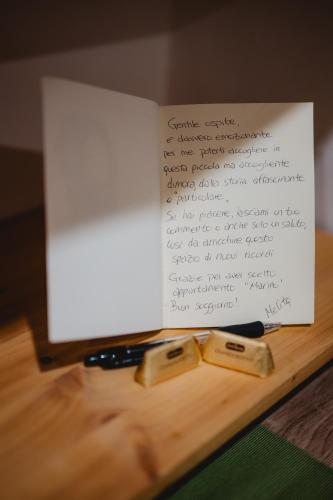 Gentile ospite,
è davvero emozionante
per me poterti accogliere in
questa piccola ma accogliente
dimora, dalla storia affascinante
e "particolare".
Se hai piacere, lasciami un tuo
commento o anche solo un saluto,
così da arricchire questo
spazio di nuovi ricordi
Grazie per aver scelto
appartamento "Marino"
Buon soggiorno!